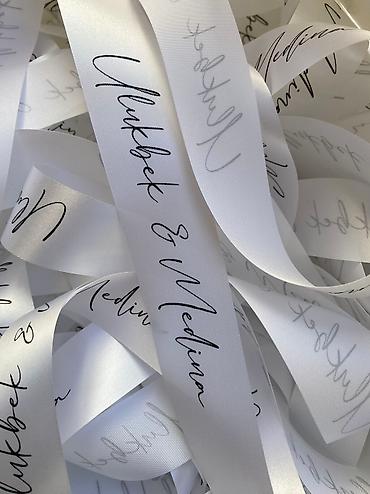 Ulukbek & Medina
Ulukbek
Medina
Medina
Ulukbek
Medina
Ulukbek
Ulukbek &
Ulukbek